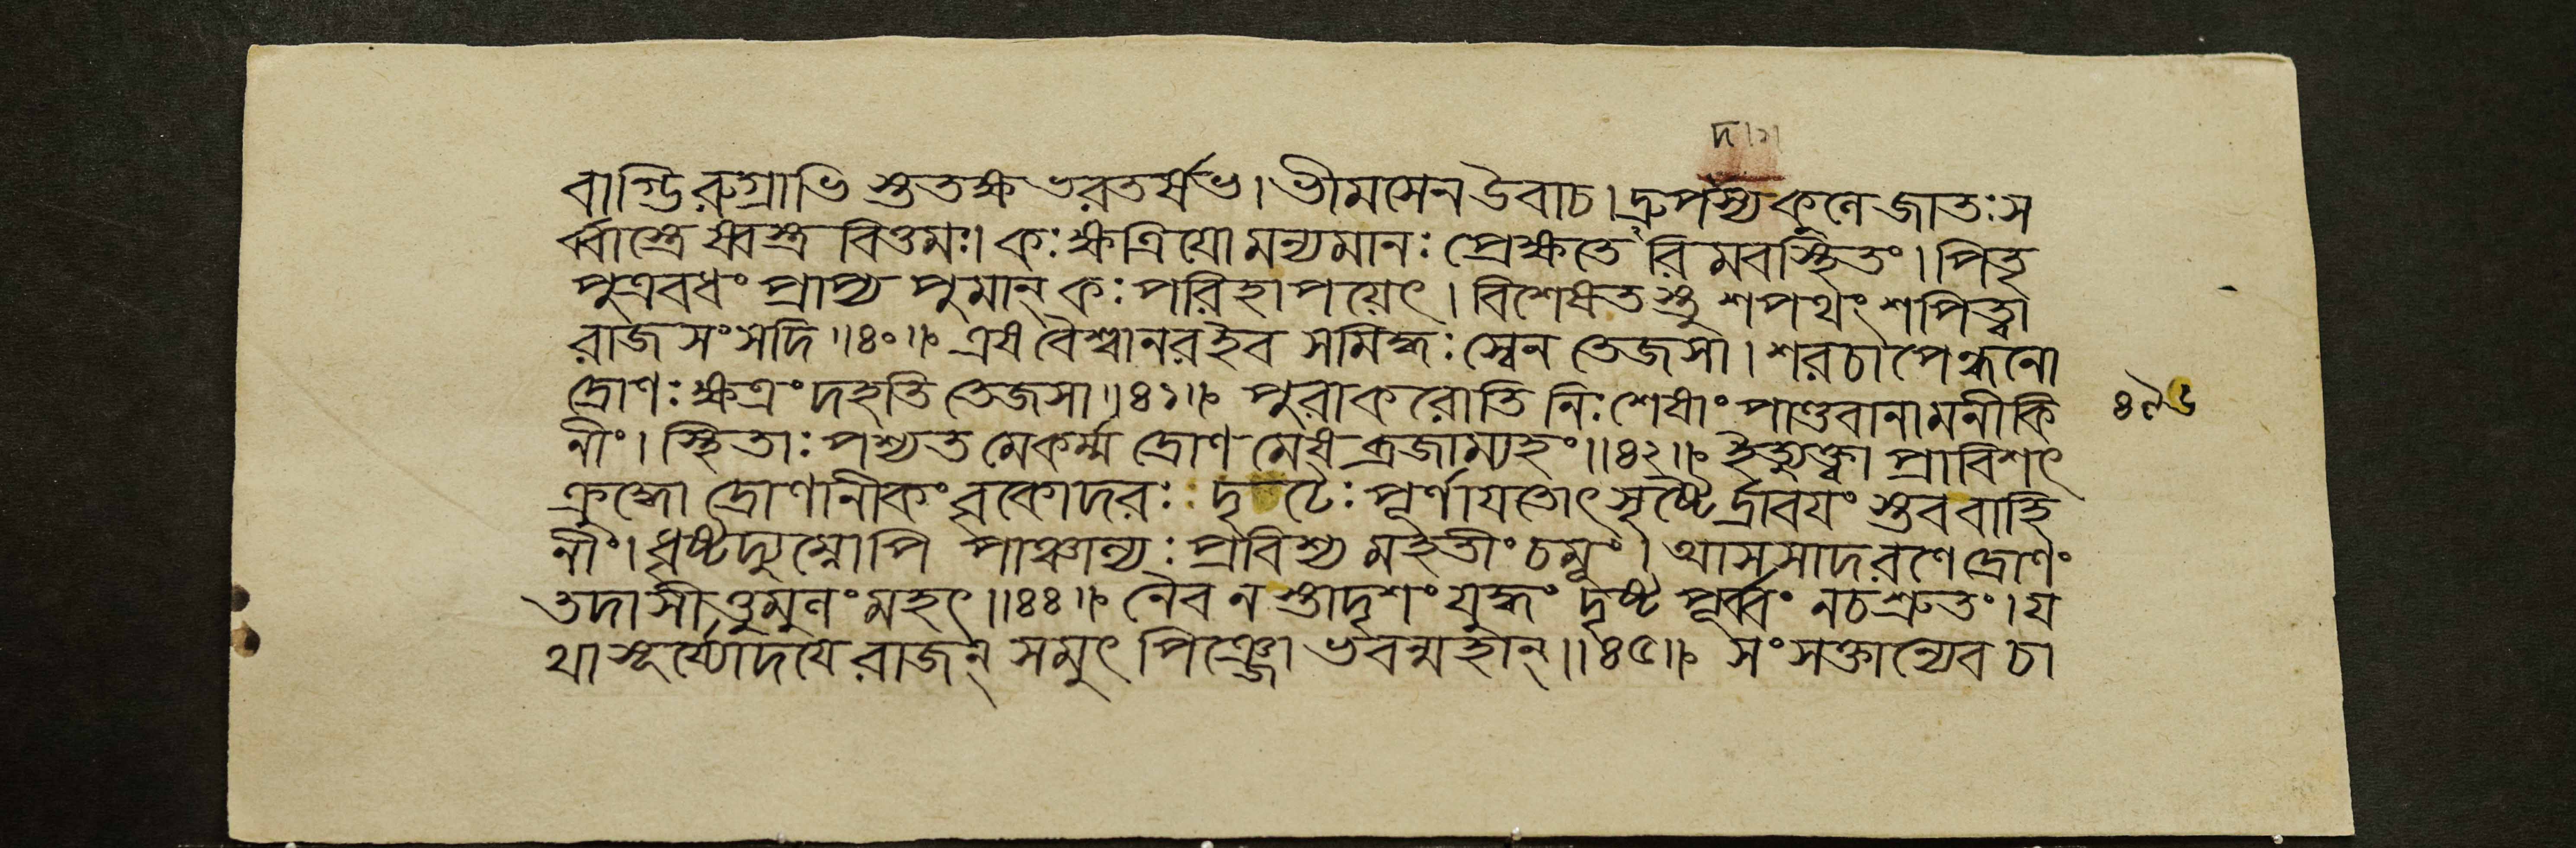 দ।১।
বাগ্ভিরুগ্রাভি স্তুতক্ষ ভরতর্ষভ। ভীমসেন উবাচ। দ্রুপস্য কুলে জাতঃ স
র্ব্বাস্ত্রেষ্বস্ত্র বিত্তমঃ। কঃ ক্ষত্রিয়ো মন্যমানঃ প্রেক্ষতে রিমবস্থিতং। পিতৃ
পুত্রবধং প্রাপ্য পুমান্ কঃ পরিহাপয়েৎ। বিশেষতস্তু শপথং শপিত্বা
রাজ সংসদি॥৪০॥ এষ বৈশ্বানর ইব সমিদ্ধঃ স্বেন তেজসা। শরচাপেন্ধনো
দ্রোণঃ ক্ষত্রং দহতি তেজসা॥৪১॥ পুরা করোতি নিঃশেষাং পাণ্ডবানামনীকি
নীং। স্থিতাঃ পশ্যত মে কর্ম্ম দ্রোণমেষ ব্রজাম্যহং॥৪২॥ ইত্যুক্ত্বা প্রাবিশৎ
ক্রুদ্ধো দ্রোণানীকং বৃকোদরঃ দৃ টৈঃ পূর্ণায়তোৎসৃষ্টৈর্দ্রাবয়ং স্তব বাহি
নীং। ধৃষ্টদ্যুম্নোপি পাঞ্চাল্যঃ প্রবিশ্য মহতীং চমূং। আসসাদ রণে দ্রোণং
তদাসীত্তুমুলং মহৎ॥৪৪॥ নৈব ন স্তাদৃশং যুদ্ধং দৃষ্ট পূর্ব্বং ন চ শ্রুতং। য
থা সূর্য্যোদয়ে রাজন্ সমুৎপিঞ্জো ভবন্মহান্॥৪৫॥ সংসক্তান্যেব চা